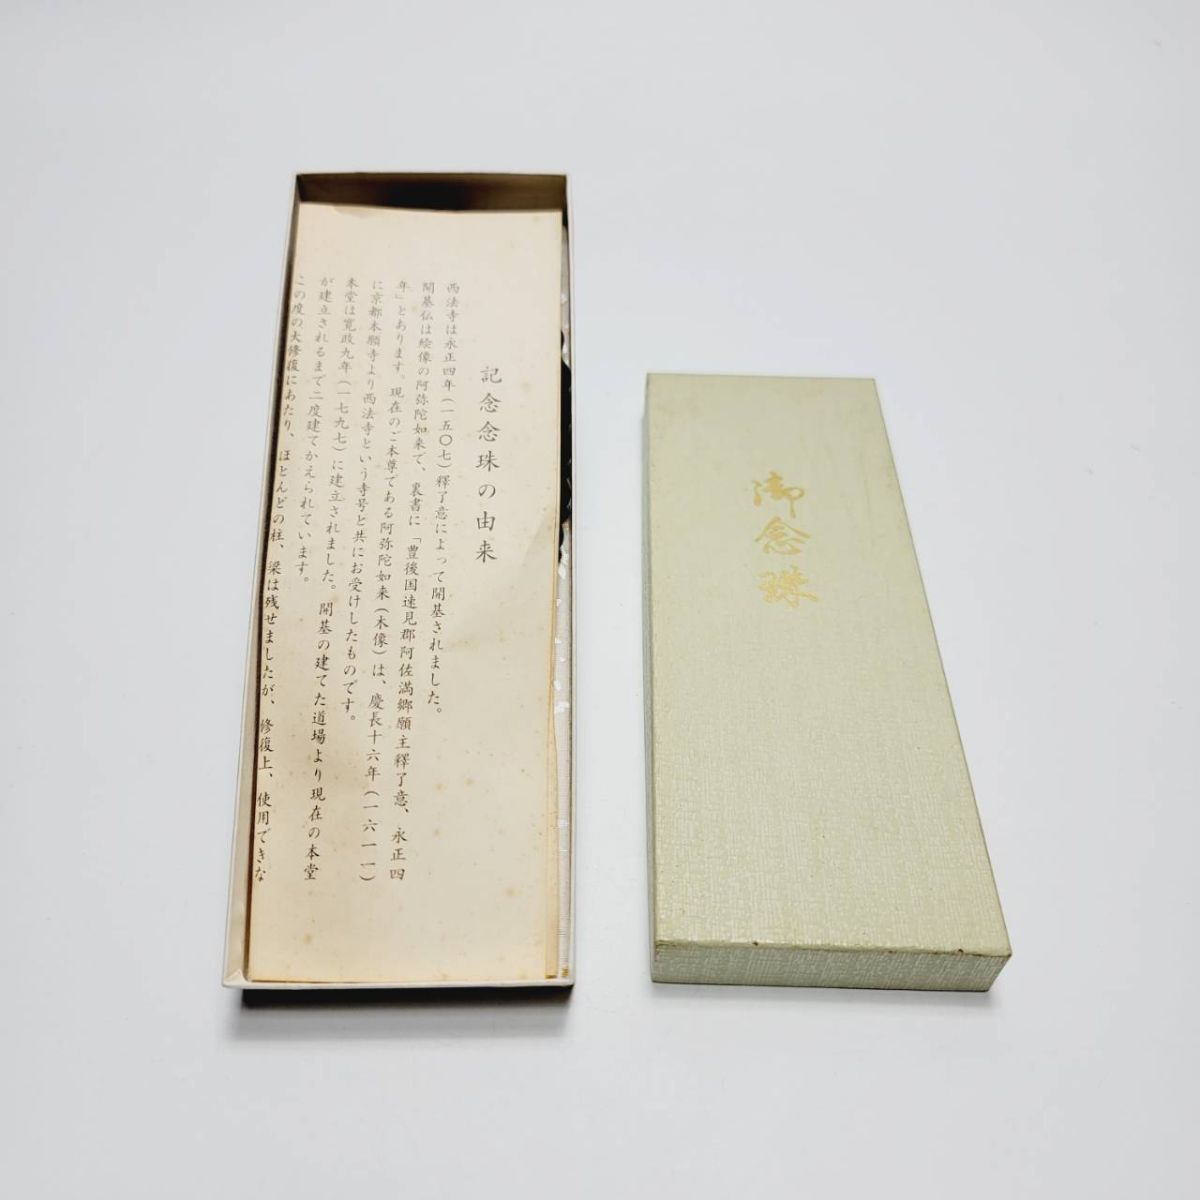 記念念珠の由来
西法寺は永正四年(一五〇七)釋了意によって開基されました。
開基仏は絵像の阿弥陀如来で、裏書に「豊後国速見郡阿佐満郷願主釋了意、永正四
年」とあります。現在のご本尊である阿弥陀如来(木像)は、慶長十六年(一六一一)
に京都本願寺より西法寺という寺号と共にお受けしたものです。
本堂は寛政九年(一七九七)に建立されました。開基の建てた道場より現在の本堂
が建立されるまで二度建てかえられています。
この度の大修復にあたり、ほとんどの柱、梁は残せましたが、修復上、使用できな
御念珠